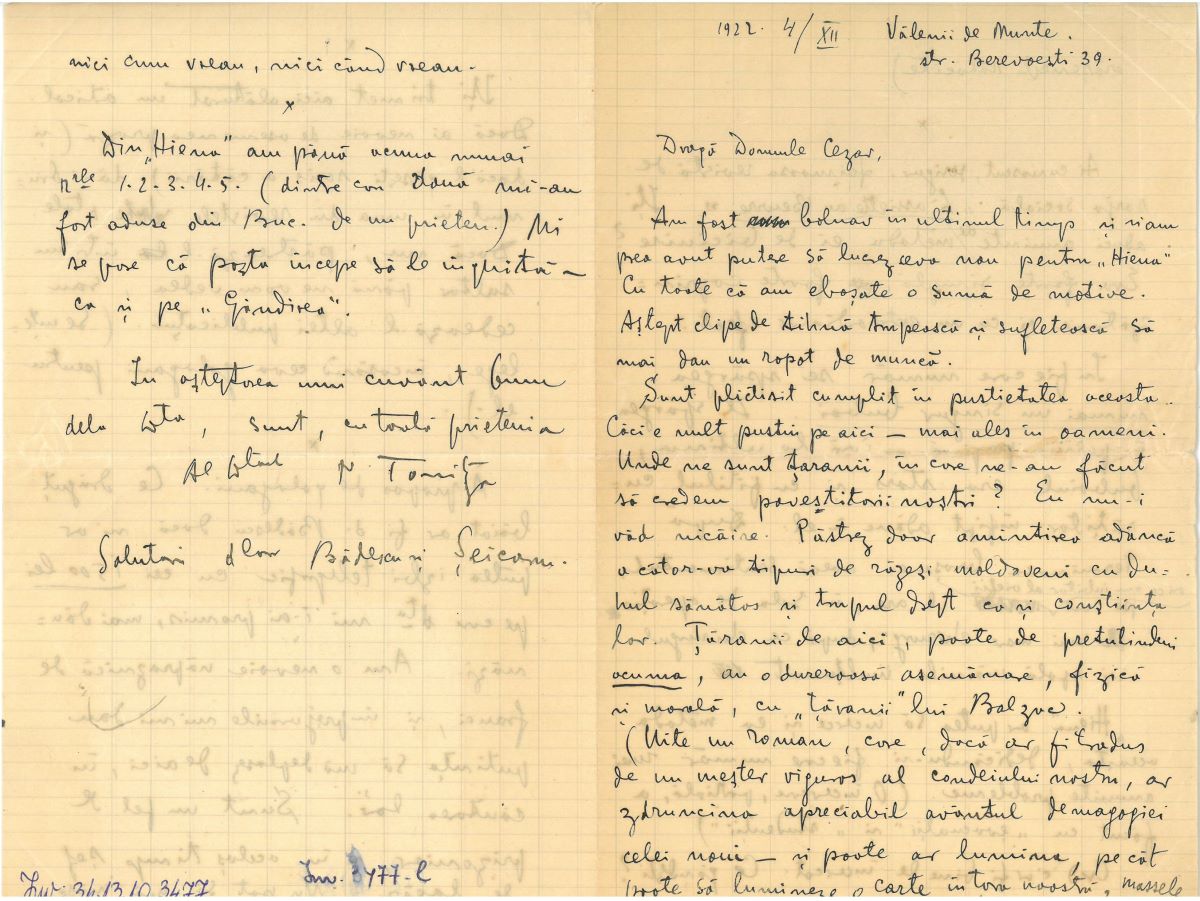 nici cum vreau, nici când vreau.
x
Din „Hiena” am până acuma numai
nrele 1.2.3.4.5. (dintre cari două mi-au
fost aduse din Buc. de un prieten.) Mi
se pare că poșta începe să le inghită –
ca și pe „Gândirea”.
In așteptarea unui cuvânt bun
dela Dta, sunt, cu toată prietenia
Al Dtale N Tonitza
Salutări dlor Bădescu și Șeicaru.
Inv. 3413/0.3477
Inv. 3477-l
1922. 4/XII Vălenii de Munte.
str. Berevoești 39.
Dragă Domnule Cezar,
Am fost bolnav în ultimul timp și n'am
prea avut putere să lucrez ceva nou pentru „Hiena”
Cu toate că am eboșate o sumă de motive.
Aștept clipe de tihnă trupească și sufletească să
mai dau un ropot de muncă.
Sunt plictisit cumplit în pustietatea aceasta.
Căci e mult pustiu pe aici – mai ales în oameni.
Unde ne sunt țaranii, în care ne-au făcut
să credem povestitorii noștri? Eu nu-i
văd nicăire. Păstrez doar amintirea adâncă
a câtor-va tipuri de răzeși moldoveni cu du-
hul sănătos și trupul drept ca și conștiința
lor. Țăranii de aici, poate de pretutindeni
acuma, au o dureroasă asemănare, fizică
și morală, cu „țăranii” lui Balzac.
(Uite un roman, care, dacă ar fi tradus
de un meșter viguros al condeiului nostru, ar
zdruncina apreciabil avântul demagogiei
celei noui – și poate ar lumina, pe cât
poate să lumineze o carte in țara noastră, massele